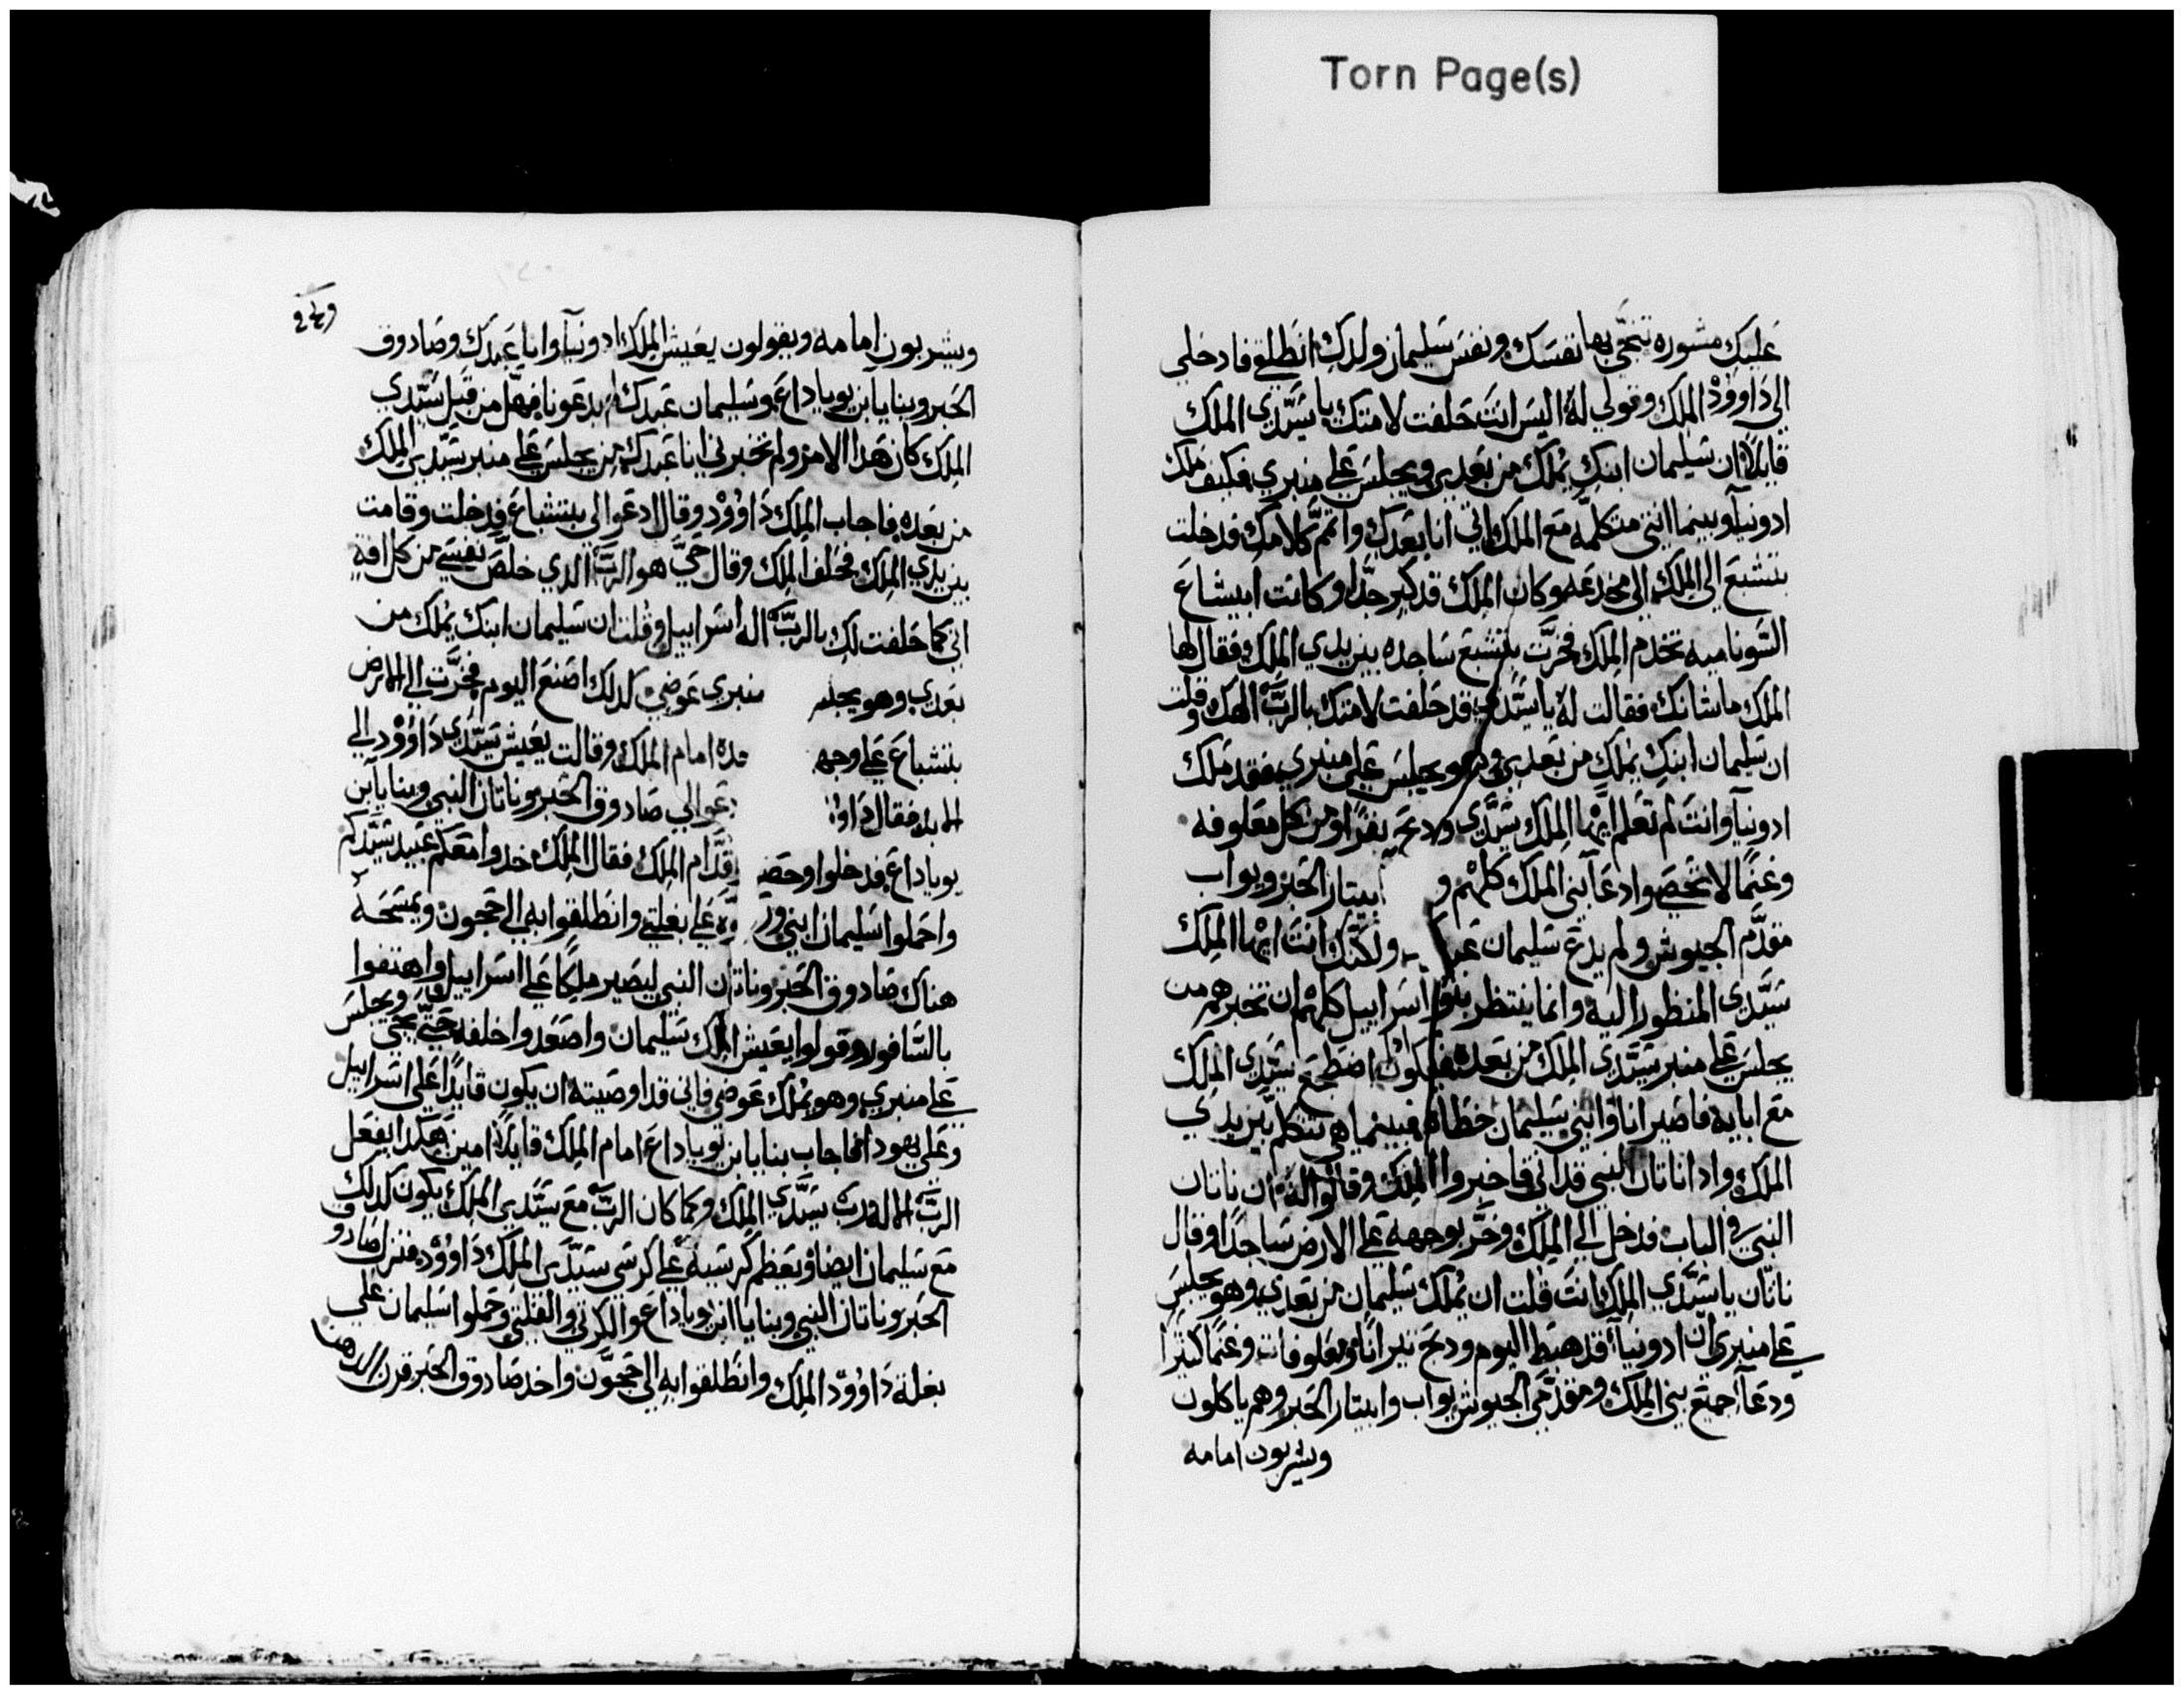 Torn Page(s)
عليك مشوره تنجي بها نفسك ونفس سليمان ولدك انطلقي فادخلي
الي داوود الملك وقولي له اليس انت حلفت لامتك يا سيدي الملك
قايلا ان سليمان ابنك يملك من بعدي ويجلس علي منبري فكيف ملك
ادونيا وبينما انتي متكلمه مع الملك اتي انا بعدك واتمم كلامك فدخلت
بتشبع الي الملك الي مخدعه وكان الملك قد كبر جدا وكانت ابيشاع
السوناميه تخدم الملك فخرت بتشبع ساجده بين يدي الملك فقال لها
الملك ما شانك فقالت له يا سيدي قد حلفت لامتك بالرب الهك وقلت
ان سليمان ابنك يملك من بعدي وهو يجلس علي منبري فقد ملك
ادونيا وانت لم تعلم ايها الملك سيدي ودبح بقرا ومن كل معلوفه
وغنما لا تحصي وادعا بني الملك كلهم و ابيتار الحبر ويواب
مقدم الجيوش ولم يدع سليمان ولكنك انت ايها الملك
سيدي المنظور اليه وانما ينتظر بنوا اسراييل كلهم ان تخبرهم من
يجلس علي منبر سيدي الملك من بعده فيكون ادا اضطجع سيدي الملك
مع ابايه فاصير انا وابني سليمان خطاه فبينما هي تتكلم بين يدي
الملك وادا ناتان النبي قد اتي فاخبروا الملك وقالوا له ان ناتان
النبي في الباب فدخل الي الملك وخر بوجهه علي الارض ساجدا وقال
ناتان يا سيدي الملك انت قلت ان يملك سليمان من بعدي وهو يجلس
علي منبري ان ادونيا قد هبط اليوم ودبح تيرانا ومعلوفات وغنما كتيرا
ودعا جميع بني الملك ومقدمي الجيوش يواب وابيتار الحبر وهم ياكلون
ويشربون امامه
ويشربون امامه ويقولون يعيش الملك ادونيا وانا عبدك وصادوق
الحبر وبنايا بن يوياداع وسليمان عبدك لم يدعونا فهل من قبل سيدي
الملك كان هدا الامر ولم تخبرني انا عبدك من يجلس علي منبر سيدي الملك
من بعده فاجاب الملك داوود وقال ادعوا لي بيتشباع فدخلت وقامت
بين يدي الملك فحلف الملك وقال حي هو الرب الدي خلص نفسي من كل افه
اني كما حلفت لك بالرب اله اسراييل وقلت ان سليمان ابنك يملك من
بعدي وهو يجلس منبري عوضي كدلك اصنع اليوم فخرت الي الارض
بتشباع علي وجهـ ـجده امام الملك وقالت يعيش سيدي داوود الي
الابد فقال داوو دعوا لي صادوق الحبر وناتان النبي وبنايا بن
يوياداع فدخلوا وحضـ قدام الملك فقال الملك خدوا معكم عبيد سيدكم
واحملوا سليمان ابني علي بغلتي وانطلقوا به الي جيحون ويمسحه
هناك صادوق الحبر وناتان النبي ليصير ملكا علي اسراييل واهتفوا
بالسافور وقولوا يعيش الملك سليمان واصعدوا خلفه حتي يجي ويجلس
علي منبري وهو يملك عوضي فاني قد اوصيته ان يكون قايدا علي اسراييل
وعلي يهودا فاجاب بنايا بن يوياداع امام الملك قايلا امين هكدا يفعل
الرب الاله رب سيدي الملك وكما كان الرب مع سيدي الملك يكون كدلك
مع سليمان ايضا ويعظم كرسيه علي كرسي سيدي الملك داوود فنزل صادوق
الحبر وناتان النبي وبنايا ابن يوياداع والكرتي والفلتي وحملوا سليمان علي
بغلة داوود الملك وانطلقوا به الي جيحون واخد صادوق الحبر قرن الدهن